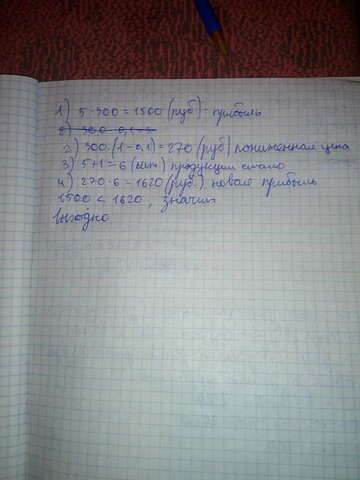 1) 5·300 = 1500 (руб) - прибыль
2) 300·0,1 =
2) 300·(1-0,1) = 270 (руб) пониженная цена
3) 5+1 = 6 (ат) продукции стало
4) 270·6 = 1620 (руб.) новая прибыль
1500 < 1620, значит
выгодно